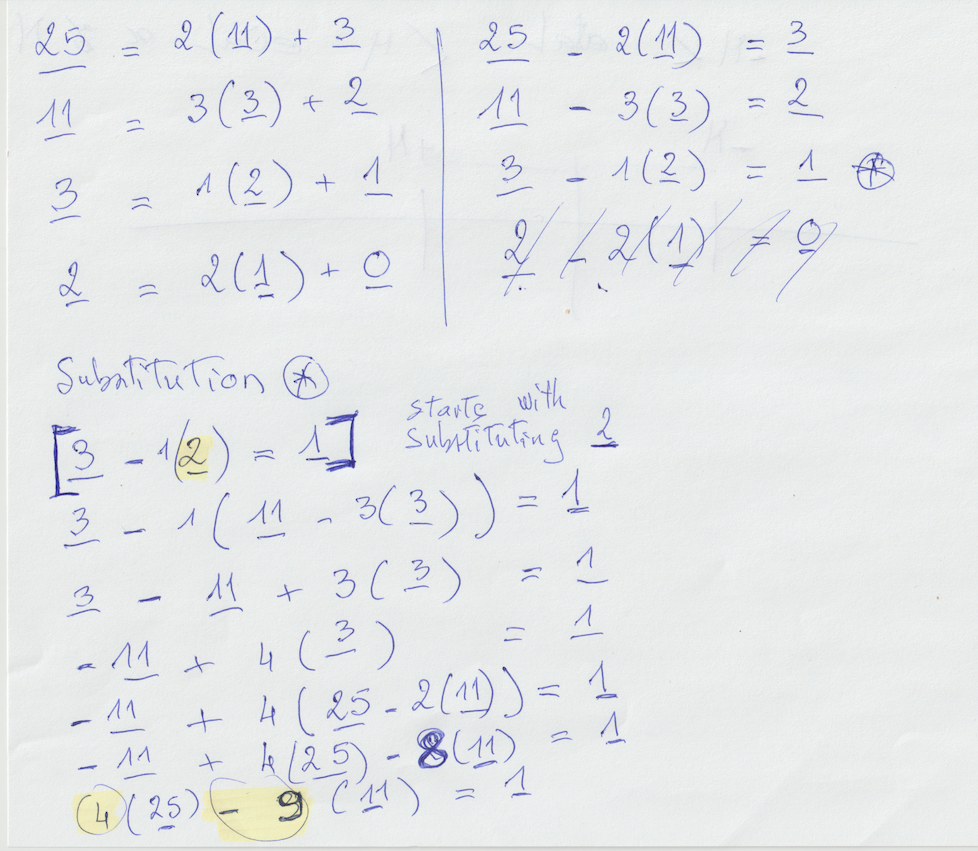 25 = 2(11) + 3
11 = 3(3) + 2
3 = 1(2) + 1
2 = 2(1) + 0
25 - 2(11) = 3
11 - 3(3) = 2
3 - 1(2) = 1 *
2 - 2(1) = 0
Substitution *
[3 - 1(2) = 1]
starts with
substituting 2
3 - 1(11 - 3(3)) = 1
3 - 11 + 3(3) = 1
- 11 + 4(3) = 1
- 11 + 4(25 - 2(11)) = 1
- 11 + 4(25) - 8(11) = 1
4(25) - 9(11) = 1